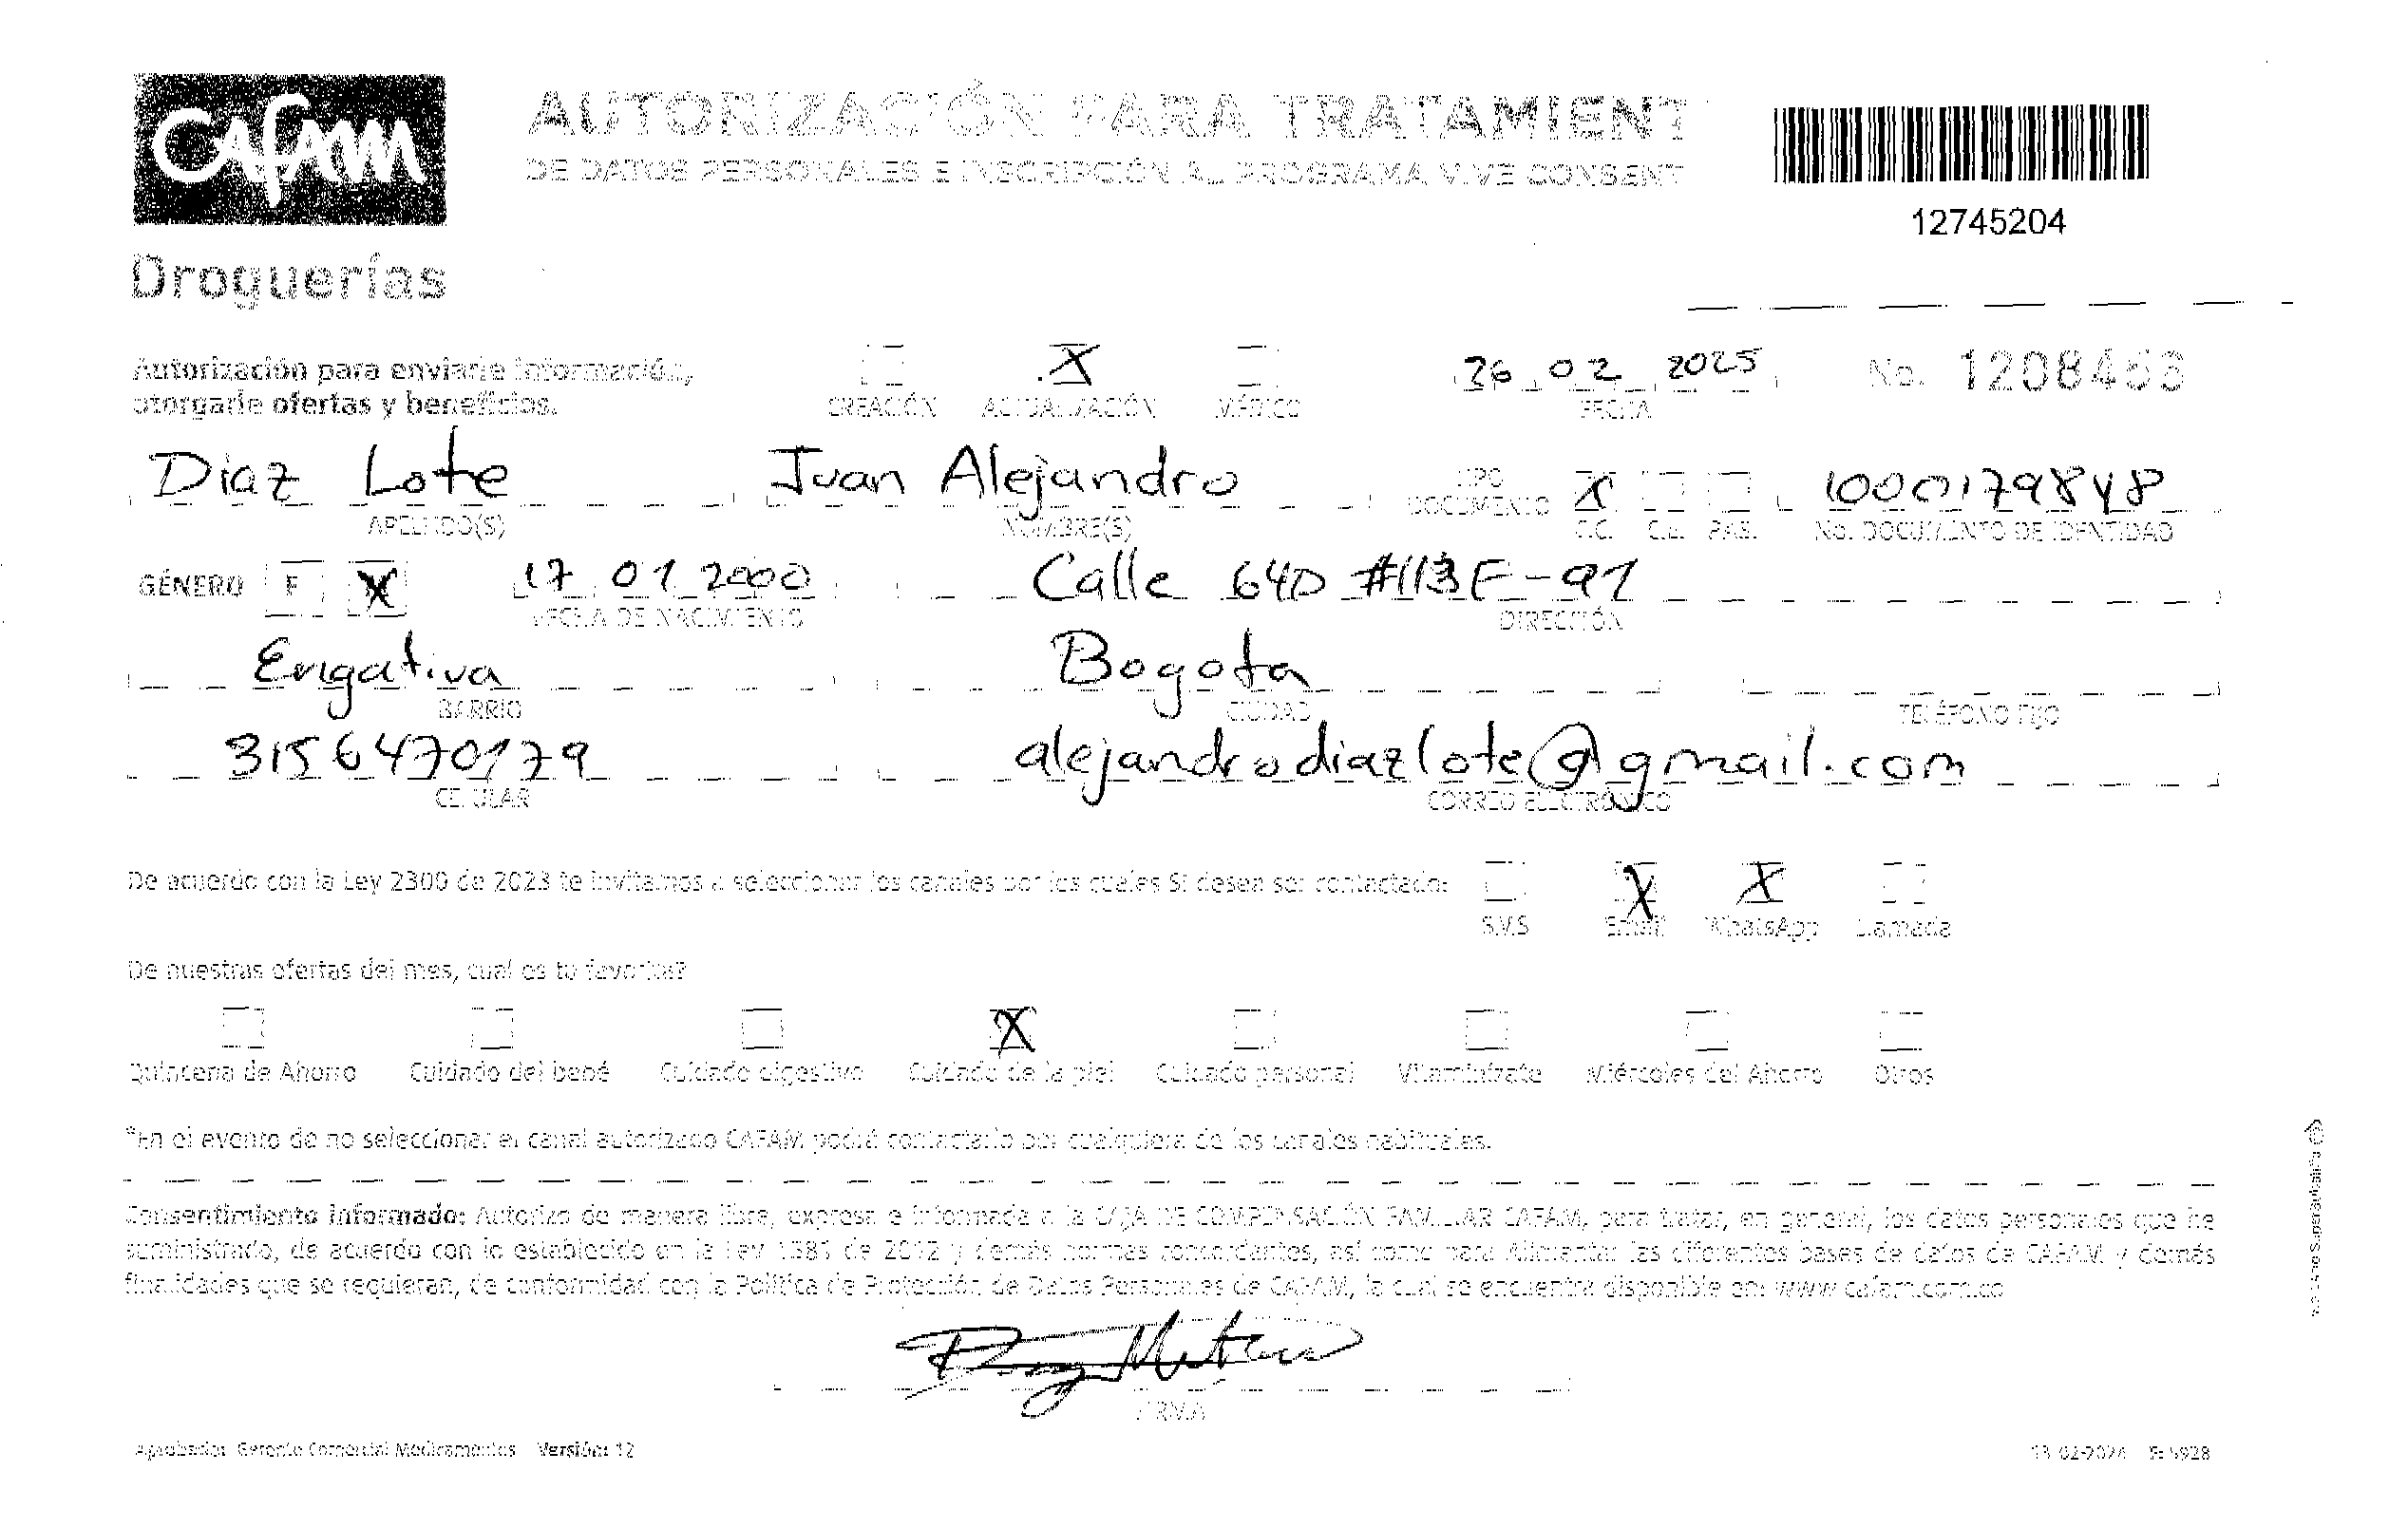 CAFAM
AUTORIZACIÓN PARA TRATAMIENT
DE DATOS PERSONALES E INSCRIPCIÓN AL PROGRAMA VIVE CONSENT
12745204
Droguerías
Autorización para enviarle información,
otorgarle ofertas y beneficios.
CREACIÓN X ACTUALIZACIÓN MÉDICO
26 02 2025
FECHA
No. 1208453
Diaz Lote Juan Alejandro TIPO DOCUMENTO X 1000179848
APELLIDO(S) NOMBRE(S) C.C. C.E. PAS. No. DOCUMENTO DE IDENTIDAD
GÉNERO F X 17 01 2000 Calle 64D #113F-91
FECHA DE NACIMIENTO DIRECCIÓN
Engativa Bogota
BARRIO CIUDAD TELÉFONO FIJO
3156470179 alejandrodiazlote@gmail.com
CELULAR CORREO ELECTRÓNICO
De acuerdo con la Ley 2300 de 2023 te invitamos a seleccionar los canales por los cuales SI desea ser contactado: X X
SMS Email WhatsApp Llamada
De nuestras ofertas del mes, cual es tu favorita?
X
Quincena de Ahorro Cuidado del bebé Cuidado digestivo Cuidado de la piel Cuidado personal Vitamínizate Miércoles del Ahorro Otros
*En el evento de no seleccionar el canal autorizado CAFAM podrá contactarlo por cualquiera de los canales habituales.
Consentimiento informado: Autorizo de manera libre, expresa e informada a la CAJA DE COMPENSACIÓN FAMILIAR CAFAM, para tratar, en general, los datos personales que he
suministrado, de acuerdo con lo establecido en la Ley 1581 de 2012 y demás normas concordantes, así como para Alimentar las diferentes bases de datos de CAFAM y demás
finalidades que se requieran, de conformidad con la Política de Protección de Datos Personales de CAFAM, la cual se encuentra disponible en: www.cafam.com.co
FIRMA
Aprobado: Gerente Comercial Medicamentos Versión: 12
13-02-2024
VIGILADO Supersubsidio